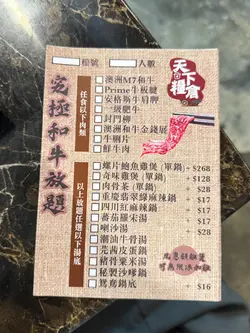 檯號 人數
天下糧倉
究極和牛放題
任食以下肉類
澳洲M7和牛
Prime牛板腱
安格斯牛肩胛
一級肥牛
封門柳
澳洲和牛金錢展
牛脷片
鮮牛肉
以上放題任選以下湯底
螺片鮑魚雞煲 (單鍋) +$268
奇味雞煲 (單鍋) +$128
肉骨茶 (單鍋) +$28
重慶翡翠酸辣鍋 +$17
四川紅麻辣鍋 +$28
蕃茄薯宋湯
喇沙湯 +$28
潮汕牛骨湯
芫茜皮蛋鍋
豬骨粟米湯
秘製沙嗲鍋
鴛鴦鍋底 +$16